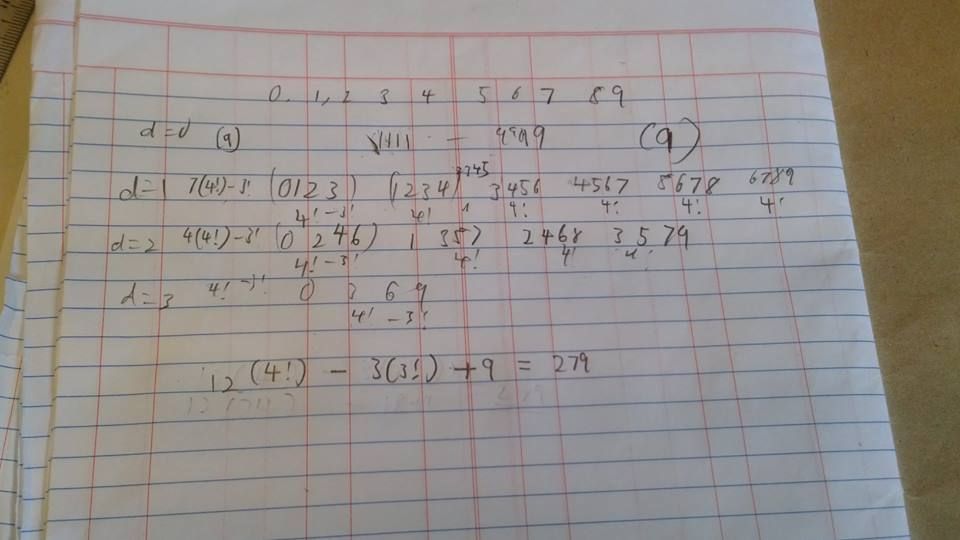 0. 1, 2 3 4 5 6 7 8 9
d=0 (9) 1111 — 9999 (9)
d=1 7(4!)-3! (0123) (1234) 2345 3456 4567 5678 6789
4!-3! 4! 4! 4! 4! 4!
d=2 4(4!)-3! (0 246) 1 357 2468 3579
4!-3! 4! 4! 4!
d=3 4!-3! 0 3 6 9
4! -3!
12(4!) - 3(3!) + 9 = 279